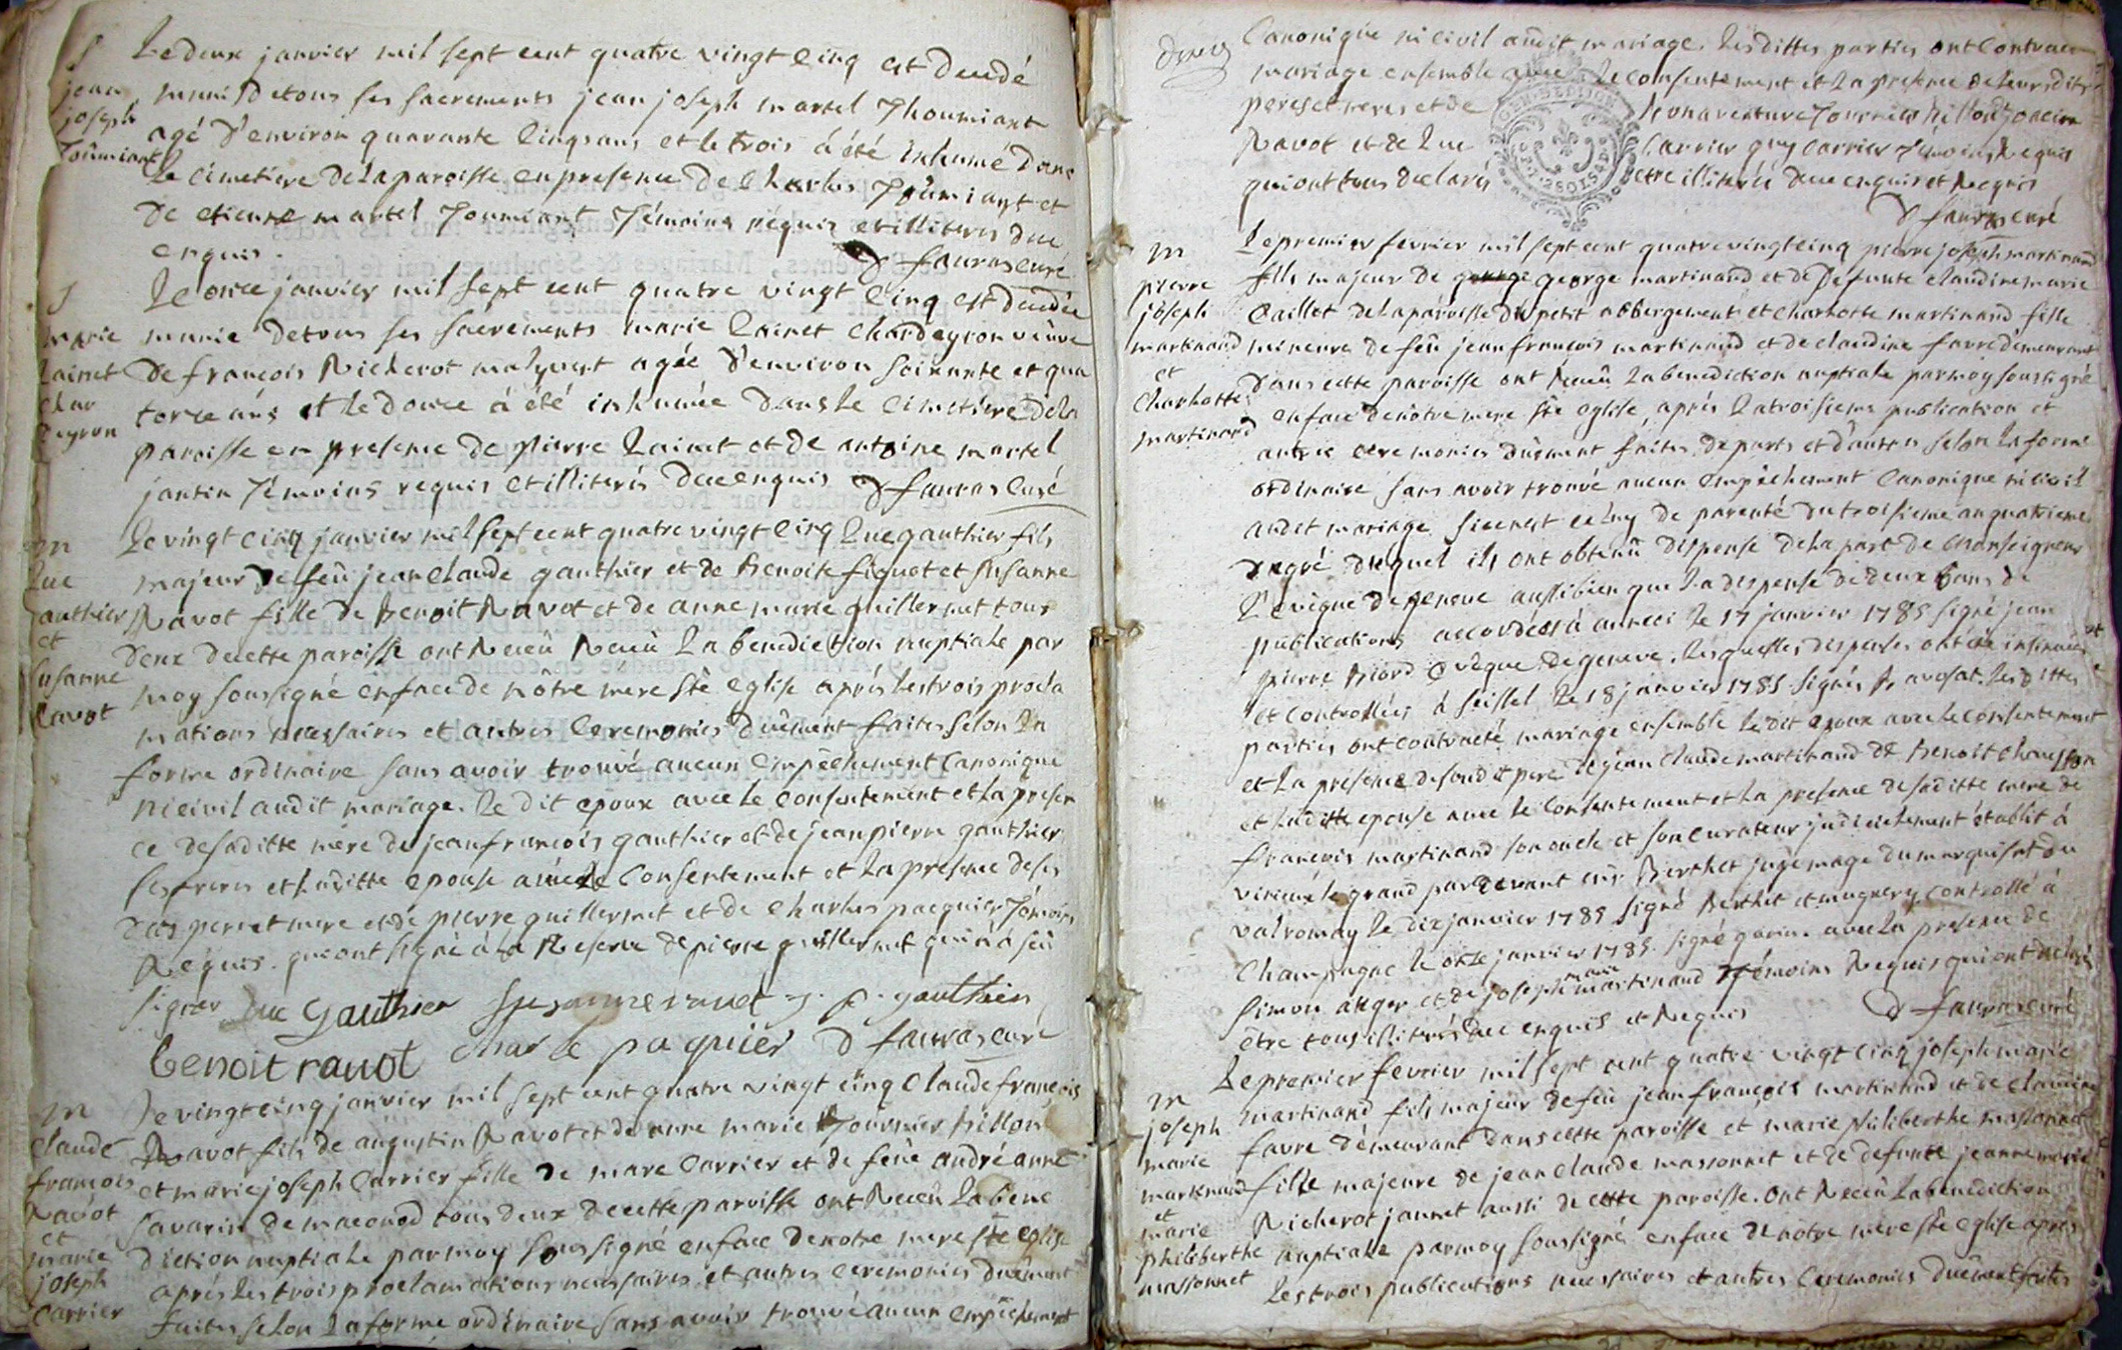 S
jean
joseph
Toûmiant
Le deux janvier mil sept cent quatre vingt cinq est décédé
muni de tous ses sacrements jean joseph martel Thoumiant
agé d'environ quarante cinq ans et le trois à été inhumé dans
le cimetiere de la paroisse en presence de Charles Toûmiant et
de etienne martel Toumiant Témoins réquis et illiterés dûe
enquis. D favras curé
S
marie
Lainet
Char
deyron
Le once janvier mil sept cent quatre vingt cinq est decedée
munie de tous ses sacrements marie Lainet Chardeyron veuve
de françois Richerot malyvert agée d'environ soixante et qua
torze ans et le douce à été inhumée dans le cimetiere de la
paroisse en presence de pierre Lainet et de antoine martel
jantin Témoins requis et illiterés due enquis D favras curé
m
Luc
gauthier
et
susanne
Ravot
Le vingt cinq janvier mil sept cent quatre vingt cinq Luc gauthier fils
majeur de feû jean Claude gauthier et de Benoite figuet et susanne
Ravot fille de Benoit Ravot et de anne marie guillermet tous
deux de cette paroisse ont Reçeû Reçeû La benediction nuptiale par
moy soussigné en face de nôtre mere Ste eglise aprés les trois procla
mations necessaires et autres Ceremonies dûement faites selon La
forme ordinaire sans avoir trouvé aucun empêchement Canonique
ni civil audit mariage. Le dit epoux avec le Consentement et la presen
ce de sa ditte mére de jean françois gauthier et de jean pierre gauthier
ses freres et la ditte epouse avec le Consentement et la presence de ses
dits pere et mere et de pierre guillermet et de Charles paequier Témoins
Requis. qui ont signé à la Reserve de pierre guillermet qui n'a sçu
signer Luc Gauthier Susanne ravot j. p. gauthier
benoit ravot Charle paquier D favras curé
m
Claude
françois
Ravot
et
marie
joseph
Carrier
Le vingt cinq janvier mil sept cent quatre vingt cinq Claude françois
Ravot fils de augustin Ravot et de anne marie Tournier hillon
et marie joseph Carrier fille de marc Carrier et de feüe andré anne
Savarin de maconod tous deux de cette paroisse ont Reçeu La bene
diction nuptiale par moy soussigné en face de notre mere Ste eglise
aprés les trois proclamations necessaires et autres ceremonies dûement
faites selon La forme ordinaire sans avoir trouvé aucun empêchement
deux
Canonique ni civil audit mariage. Les dittes parties ont Contracté
mariage ensemble avec le consentement et La presence de leurs dits
peres et meres et de bonaventure Tournier hillon
Ravot et de Luc Carrier guy Carrier Témoins Requis
qui ont tous declarés etre illiterés dûe enquis et Requis
D favras curé
m
pierre
joseph
martinand
et
Charlotte
martinand
Le premier fevrier mil sept cent quatre vingt cinq pierre joseph martinand
fils majeur de george martinand et de defunte claudine marie
Caillet de la paroisse du petit abbergement et Charlotte martinand fille
mineure de feû jean françois martinand et de claudine favre demeurant
dans cette paroisse ont Reçeû La benediction nuptiale par moy soussigné
en face de nôtre mere Ste eglise, aprés La troisieme publication et
autres ceremonies dûement faites de parts et d'autres selon La forme
ordinaire sans avoir trouvé aucun empêchement Canonique ni civil
audit mariage si ce n'est celuy de parenté du troisieme au quatrieme
degré duquel ils ont obtenû dispense de la part de monseigneur
L'evêque de geneve aussi bien que La dispense de deux bans de
publications accordées à anneci le 17 janvier 1785 signé jean
pierre Biord evêque de geneve, lesquelles dispenses ont été insinuées
et controllées à seissel le 18 janvier 1785. signés avocat. Les dittes
parties ont contracté mariage ensemble le dit epoux avec le consentement
et La presence de son dit pere de jean Claude martinand de Benoit Chausson
et La ditte epouse avec le Consentement et La presence de sa ditte mere de
françois martinand son oncle et son curateur judiciairement établit à
virieu le grand par devant Berthet juge mage du marquisat du
valromay le dix janvier 1785 signé Berthet et mugnery controllé à
Champagne le onze janvier 1785. signé garin. avec La presence de
Simon anger et de joseph marie martinand Témoins Requis qui ont declarés
être tous illiterés dûe enquis et Requis D favras curé
m
joseph
marie
martinand
et
marie
philiberthe
massonnet
Le premier fevrier mil sept cent quatre vingt cinq joseph marie
martinand fils majeur de feû jean françois martinand et de claudine
favre demeurant dans cette paroisse et marie philiberthe massonnet
fille majeure de jean Claude massonnet et de defunte jeanne marie
Richerot jannet aussi de cette paroisse. Ont Reçeû La benediction
nuptiale par moy soussigné en face de nôtre mere Ste eglise aprés
les trois publications necessaires et autres Ceremonies dûement faites